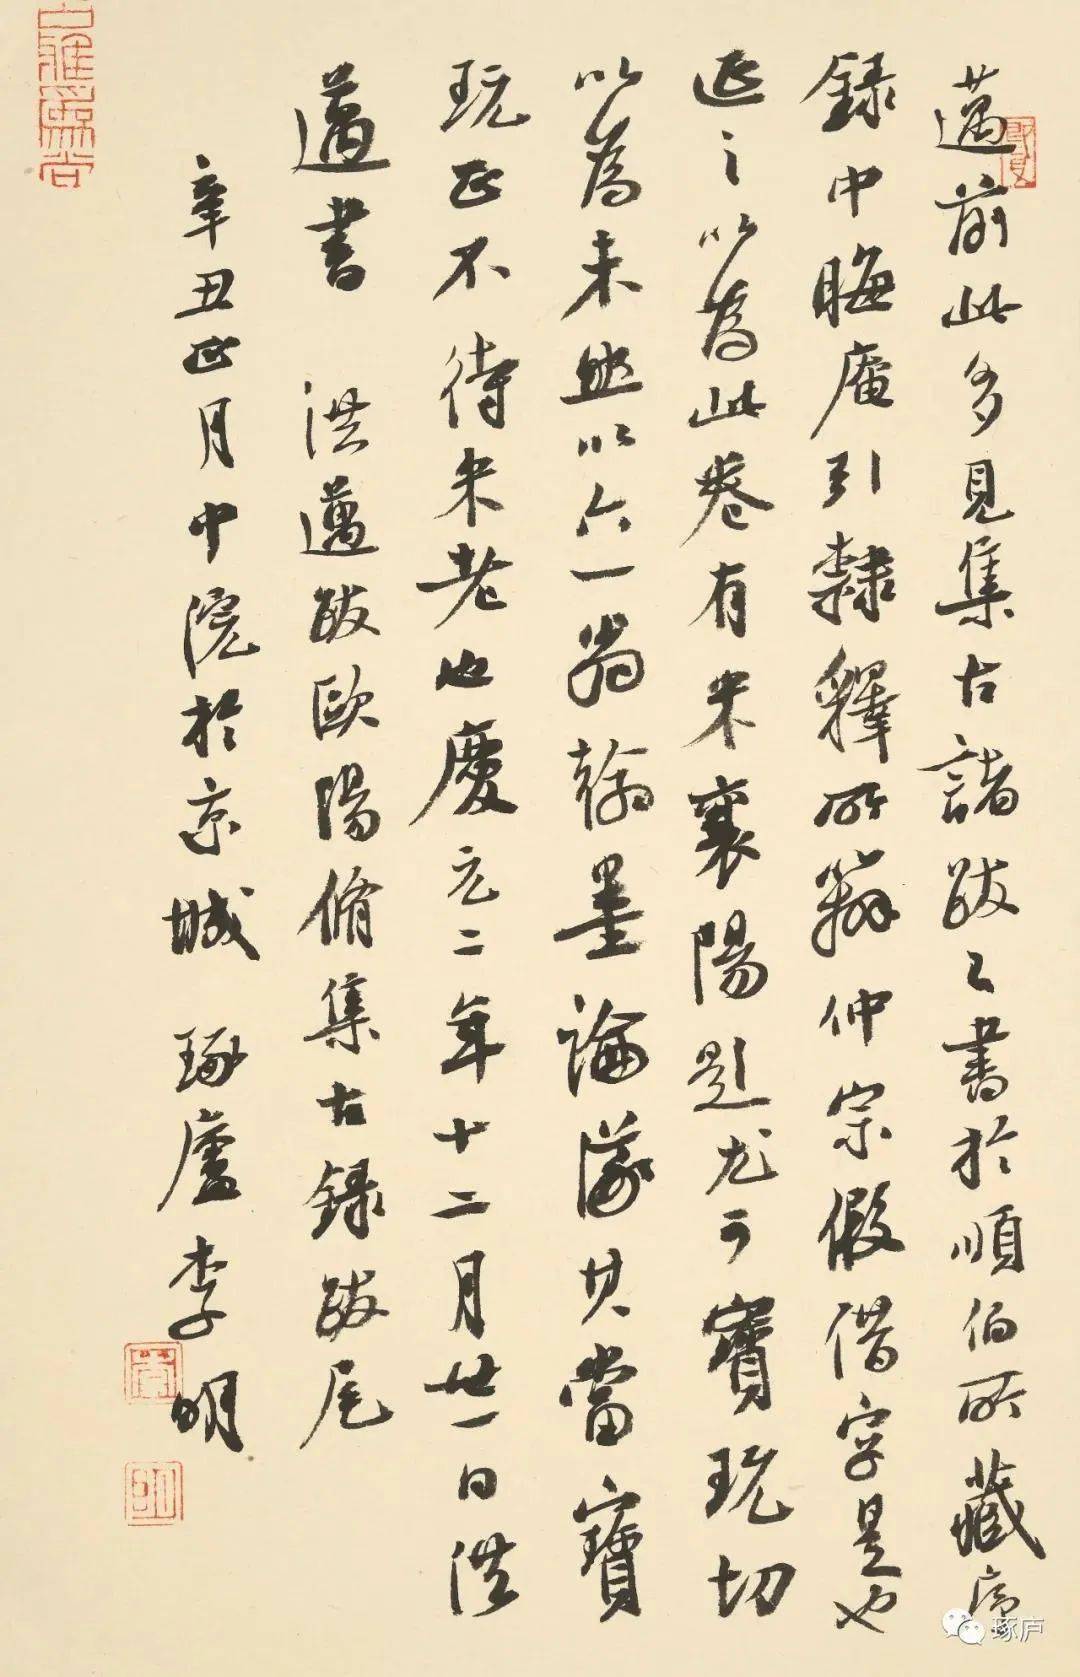 邁前此多見集古諸跋〻書於順伯所藏
録中晦庵引隸釋所辯仲宗假借字是也
延之以為此卷有米襄陽題尤可寶玩切
以為未然以六一翁翰墨論議其當寶
玩正不待米老也慶元二年十二月廿一日洪
邁書 洪邁跋歐陽脩集古録跋尾
辛丑正月中浣於京城 琢廬李明
琢庐